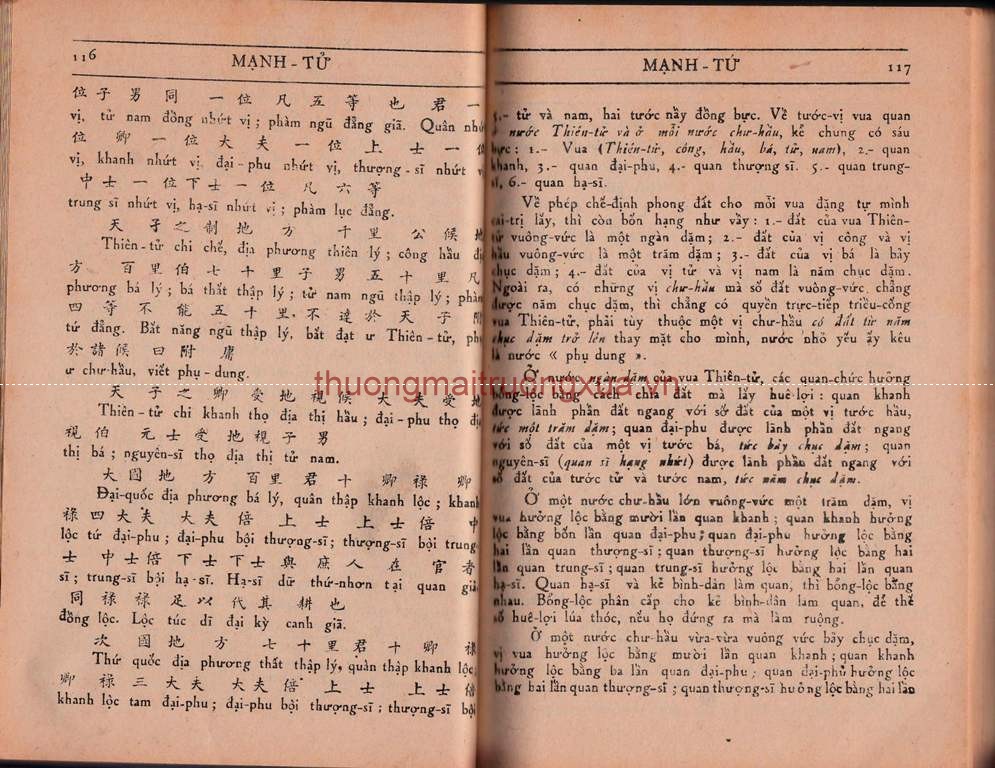 116
MẠNH-TỬ
位 子 男 同 一 位 凡 五 等 也 君 一
vị, tử nam đồng nhứt vị; phàm ngũ đẳng giã. Quân nhứ
位 卿 一 位 大 夫 一 位 上 士 一 位
vị, khanh nhứt vị, đại-phu nhứt vị, thượng-sĩ nhứt v
中 士 一 位 下 士 一 位 凡 六 等
trung sĩ nhứt vị, hạ-sĩ nhứt vị; phàm lục đẳng.
天 子 之 制 地 方 千 里 公 候 地
Thiên-tử chi chế, địa phương thiên lý; công hầu đị
方 百 里 伯 七 十 里 子 男 五 十 里 凡
phương bá lý; bá thất thập lý; tử nam ngũ thập lý; phàm
四 等 不 能 五 十 里 不 達 於 天 子 附
tứ đẳng. Bất năng ngũ thập lý, bất đạt ư Thiên-tử, ph
於 諸 候 曰 附 庸
ư chư-hầu, viết phụ-dung.
天 子 之 卿 受 地 視 候 大 夫 受 地
Thiên-tử chi khanh thọ địa thị hầu; đại-phu thọ đị
視 伯 元 士 受 地 視 子 男
thị bá; nguyên-sĩ thọ địa thị tử nam.
大 國 地 方 百 里 君 十 卿 祿 卿
Đại-quốc địa phương bá lý, quân thập khanh lộc; khanh
祿 四 大 夫 大 夫 倍 上 士 上 士 倍 中
lộc tứ đại-phu; đại-phu bội thượng-sĩ; thượng-sĩ bội trung
士 中 士 倍 下 士 下 士 與 庶 人 在 官 者
sĩ; trung-sĩ bội hạ-sĩ. Hạ-sĩ dữ thứ-nhơn tại quan giả
同 祿 祿 足 以 代 其 耕 也
đồng lộc. Lộc túc dĩ đại kỳ canh giã.
次 國 地 方 七 十 里 君 十 卿 祿
Thứ quốc địa phương thất thập lý, quân thập khanh lộc
卿 祿 三 大 夫 大 夫 倍 上 士 上 士 倍
khanh lộc tam đại-phu; đại-phu bội thượng-sĩ; thượng-sĩ bội
MẠNH-TỬ
117
5.- tử và nam, hai tước nầy đồng bực. Về tước-vị vua quan
ở nước Thiên-tử và ở mỗi nước chư-hầu, kể chung có sáu
bực: 1.- Vua (Thiên-tử, công, hầu, bá, tử, nam), 2.- quan
khanh, 3.- quan đại-phu, 4.- quan thượng sĩ. 5.- quan trung-
sĩ, 6.- quan hạ-sĩ.
Về phép chế-định phong đất cho mỗi vua đặng tự mình
cai-trị lấy, thì còn bốn hạng như vầy: 1.- đất của vua Thiên-
tử vuông-vức là một ngàn dặm; 2.- đất của vị công và vị
hầu vuông-vức là một trăm dặm; 3.- đất của vị bá là bảy
chục dặm; 4.- đất của vị tử và vị nam là năm chục dặm.
Ngoài ra, có những vị chư-hầu mà số đất vuông-vức chẳng
được năm chục dặm, thì chẳng có quyền trực-tiếp triều-cống
vua Thiên-tử, phải tùy thuộc một vị chư-hầu có đất từ năm
chục dặm trở lên thay mặt cho mình, nước nhỏ yếu ấy kêu
là nước « phụ dung ».
Ở nước ngàn dặm của vua Thiên-tử, các quan-chức hưởng
bổng-lộc bằng cách chia đất mà lấy huê-lợi: quan khanh
được lãnh phần đất ngang với số đất của một vị tước hầu,
tức một trăm dặm; quan đại-phu được lãnh phần đất ngang
với số đất của một vị tước bá, tức bảy chục dặm; quan
nguyên-sĩ (quan sĩ hạng nhứt) được lãnh phần đất ngang với
số đất của tước tử và tước nam, tức năm chục dặm.
Ở một nước chư-hầu lớn vuông-vức một trăm dặm, vị
vua hưởng lộc bằng mười lần quan khanh; quan khanh hưởng
lộc bằng bốn lần quan đại-phu; quan đại-phu hưởng lộc bằng
hai lần quan thượng-sĩ; quan thượng-sĩ hưởng lộc bằng hai
lần quan trung-sĩ; quan trung-sĩ hưởng lộc bằng hai lần quan
hạ-sĩ. Quan hạ-sĩ và kẻ bình-dân làm quan, thì bổng-lộc bằng
nhau. Bổng-lộc phân cấp cho kẻ bình-dân làm quan, để thế
số huê-lợi lúa thóc, nếu họ đứng ra mà làm ruộng.
Ở một nước chư-hầu vừa-vừa vuông vức bảy chục dặm,
vị vua hưởng lộc bằng mười lần quan khanh; quan khanh
hưởng lộc bằng ba lần quan đại-phu; quan đại-phu hưởng lộc
bằng hai lần quan thượng-sĩ; quan thượng-sĩ hưởng lộc bằng hai lần
thuongmaitruongxua.vn